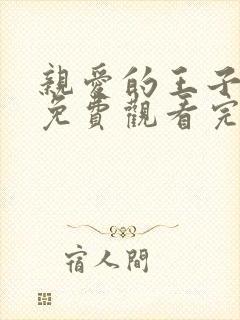 親愛的王子
免費觀看完
宿人間